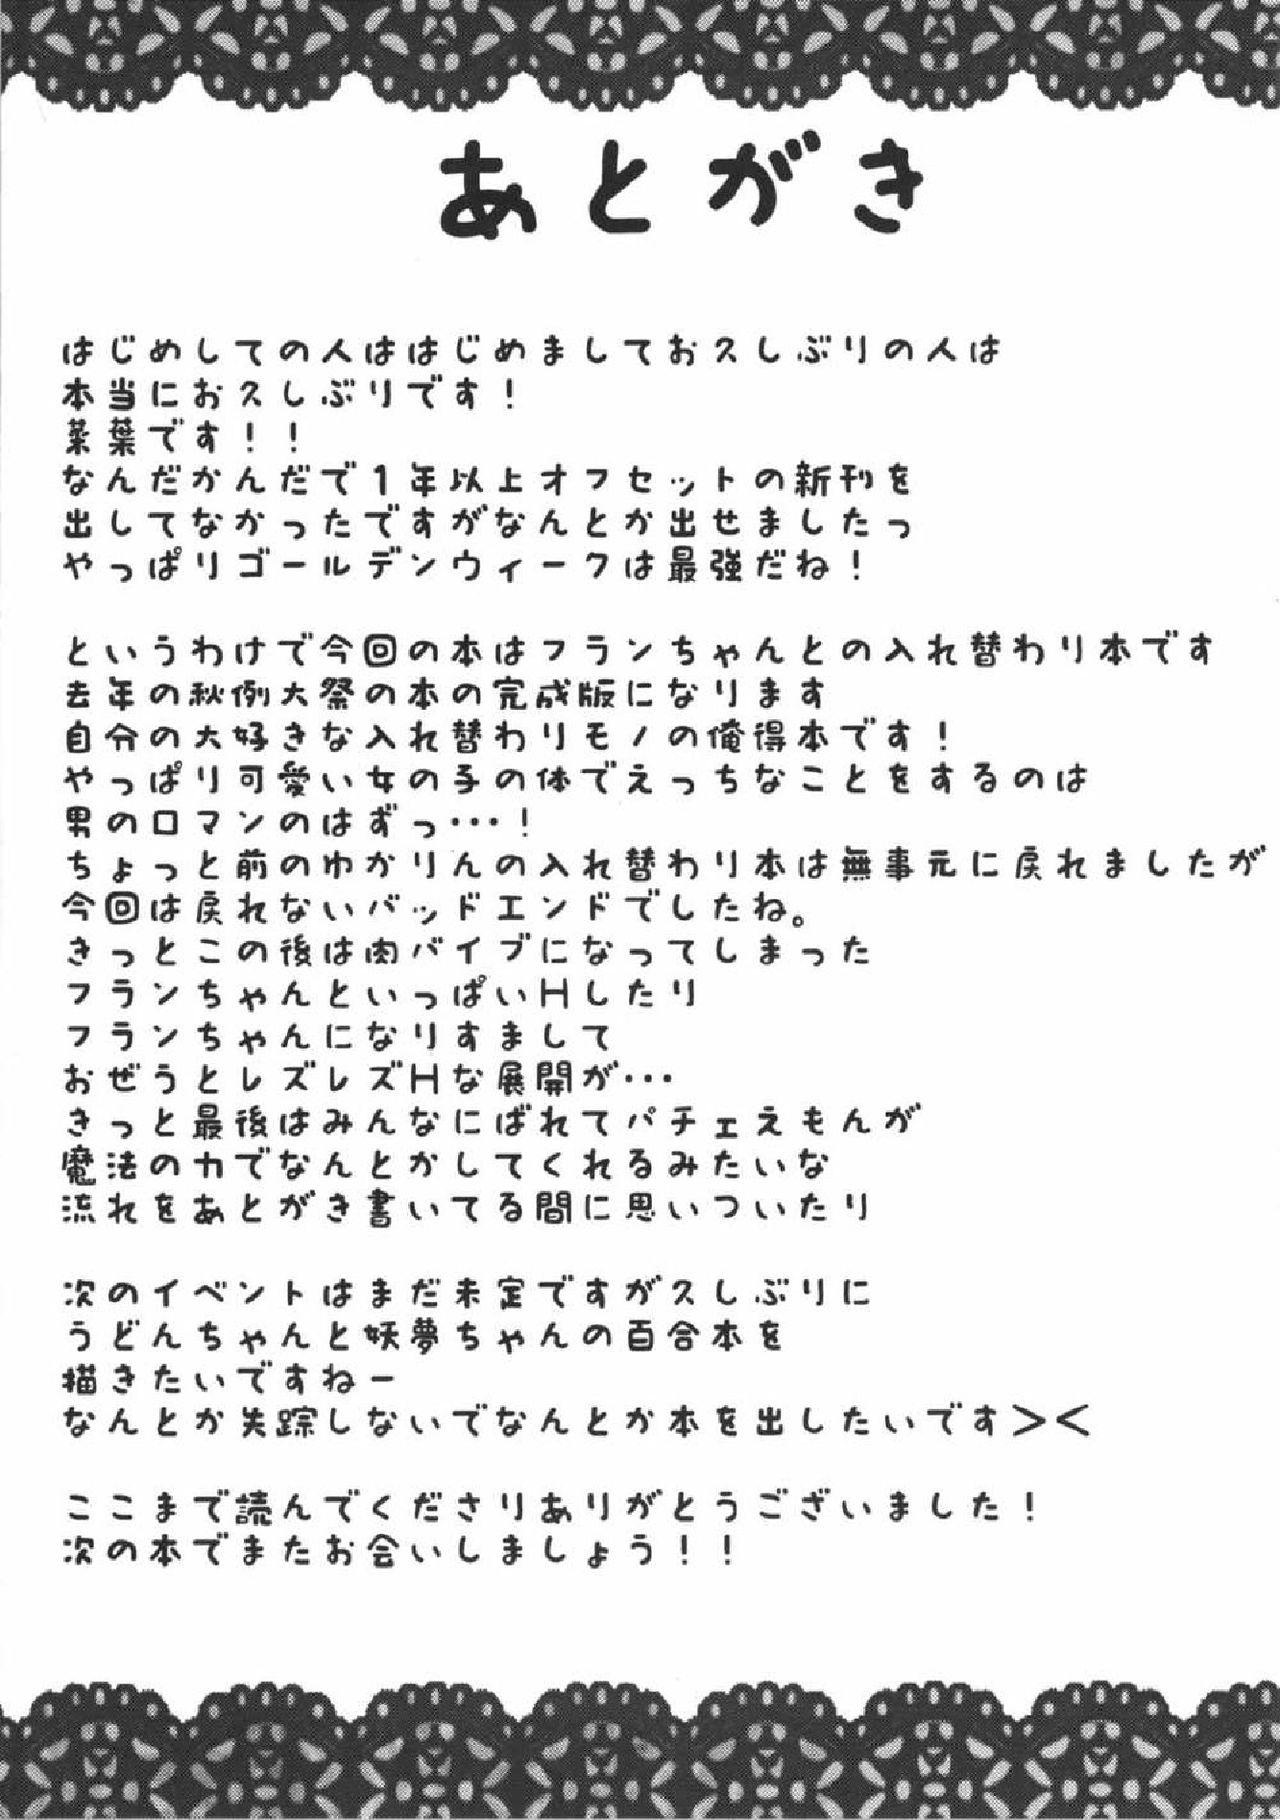 あとがき
はじめしての人ははじめましておスしぶりの人は
本当におスしぶりです！
菜葉です！！
なんだかんだで1年以上オフセットの新刊を
出してなかったですがなんとか出せましたっ
やっぱりゴールデンウィークは最強だね！
というわけで今回の本はフランちゃんとの入れ替わり本です
去年の秋例大祭の本の完成版になります
自分の大好きな入れ替わりモノの俺得本です！
やっぱり可愛い女の子の体でえっちなことをするのは
男のロマンのはずっ・・・！
ちょっと前のゆかりんの入れ替わり本は無事元に戻れましたが
今回は戻れないバッドエンドでしたね。
きっとこの後は肉バイブになってしまった
フランちゃんといっぱいHしたり
フランちゃんになりすまして
おぜうとレズレズHな展開が・・・
きっと最後はみんなにばれてパチェえもんが
魔法の力でなんとかしてくれるみたいな
流れをあとがき書いてる間に思いついたり
次のイベントはまだ未定ですがスしぶりに
うどんちゃんと妖夢ちゃんの百合本を
描きたいですねー
なんとか失踪しないでなんとか本を出したいです＞＜
ここまで読んでくださりありがとうございました！
次の本でまたお会いしましょう！！